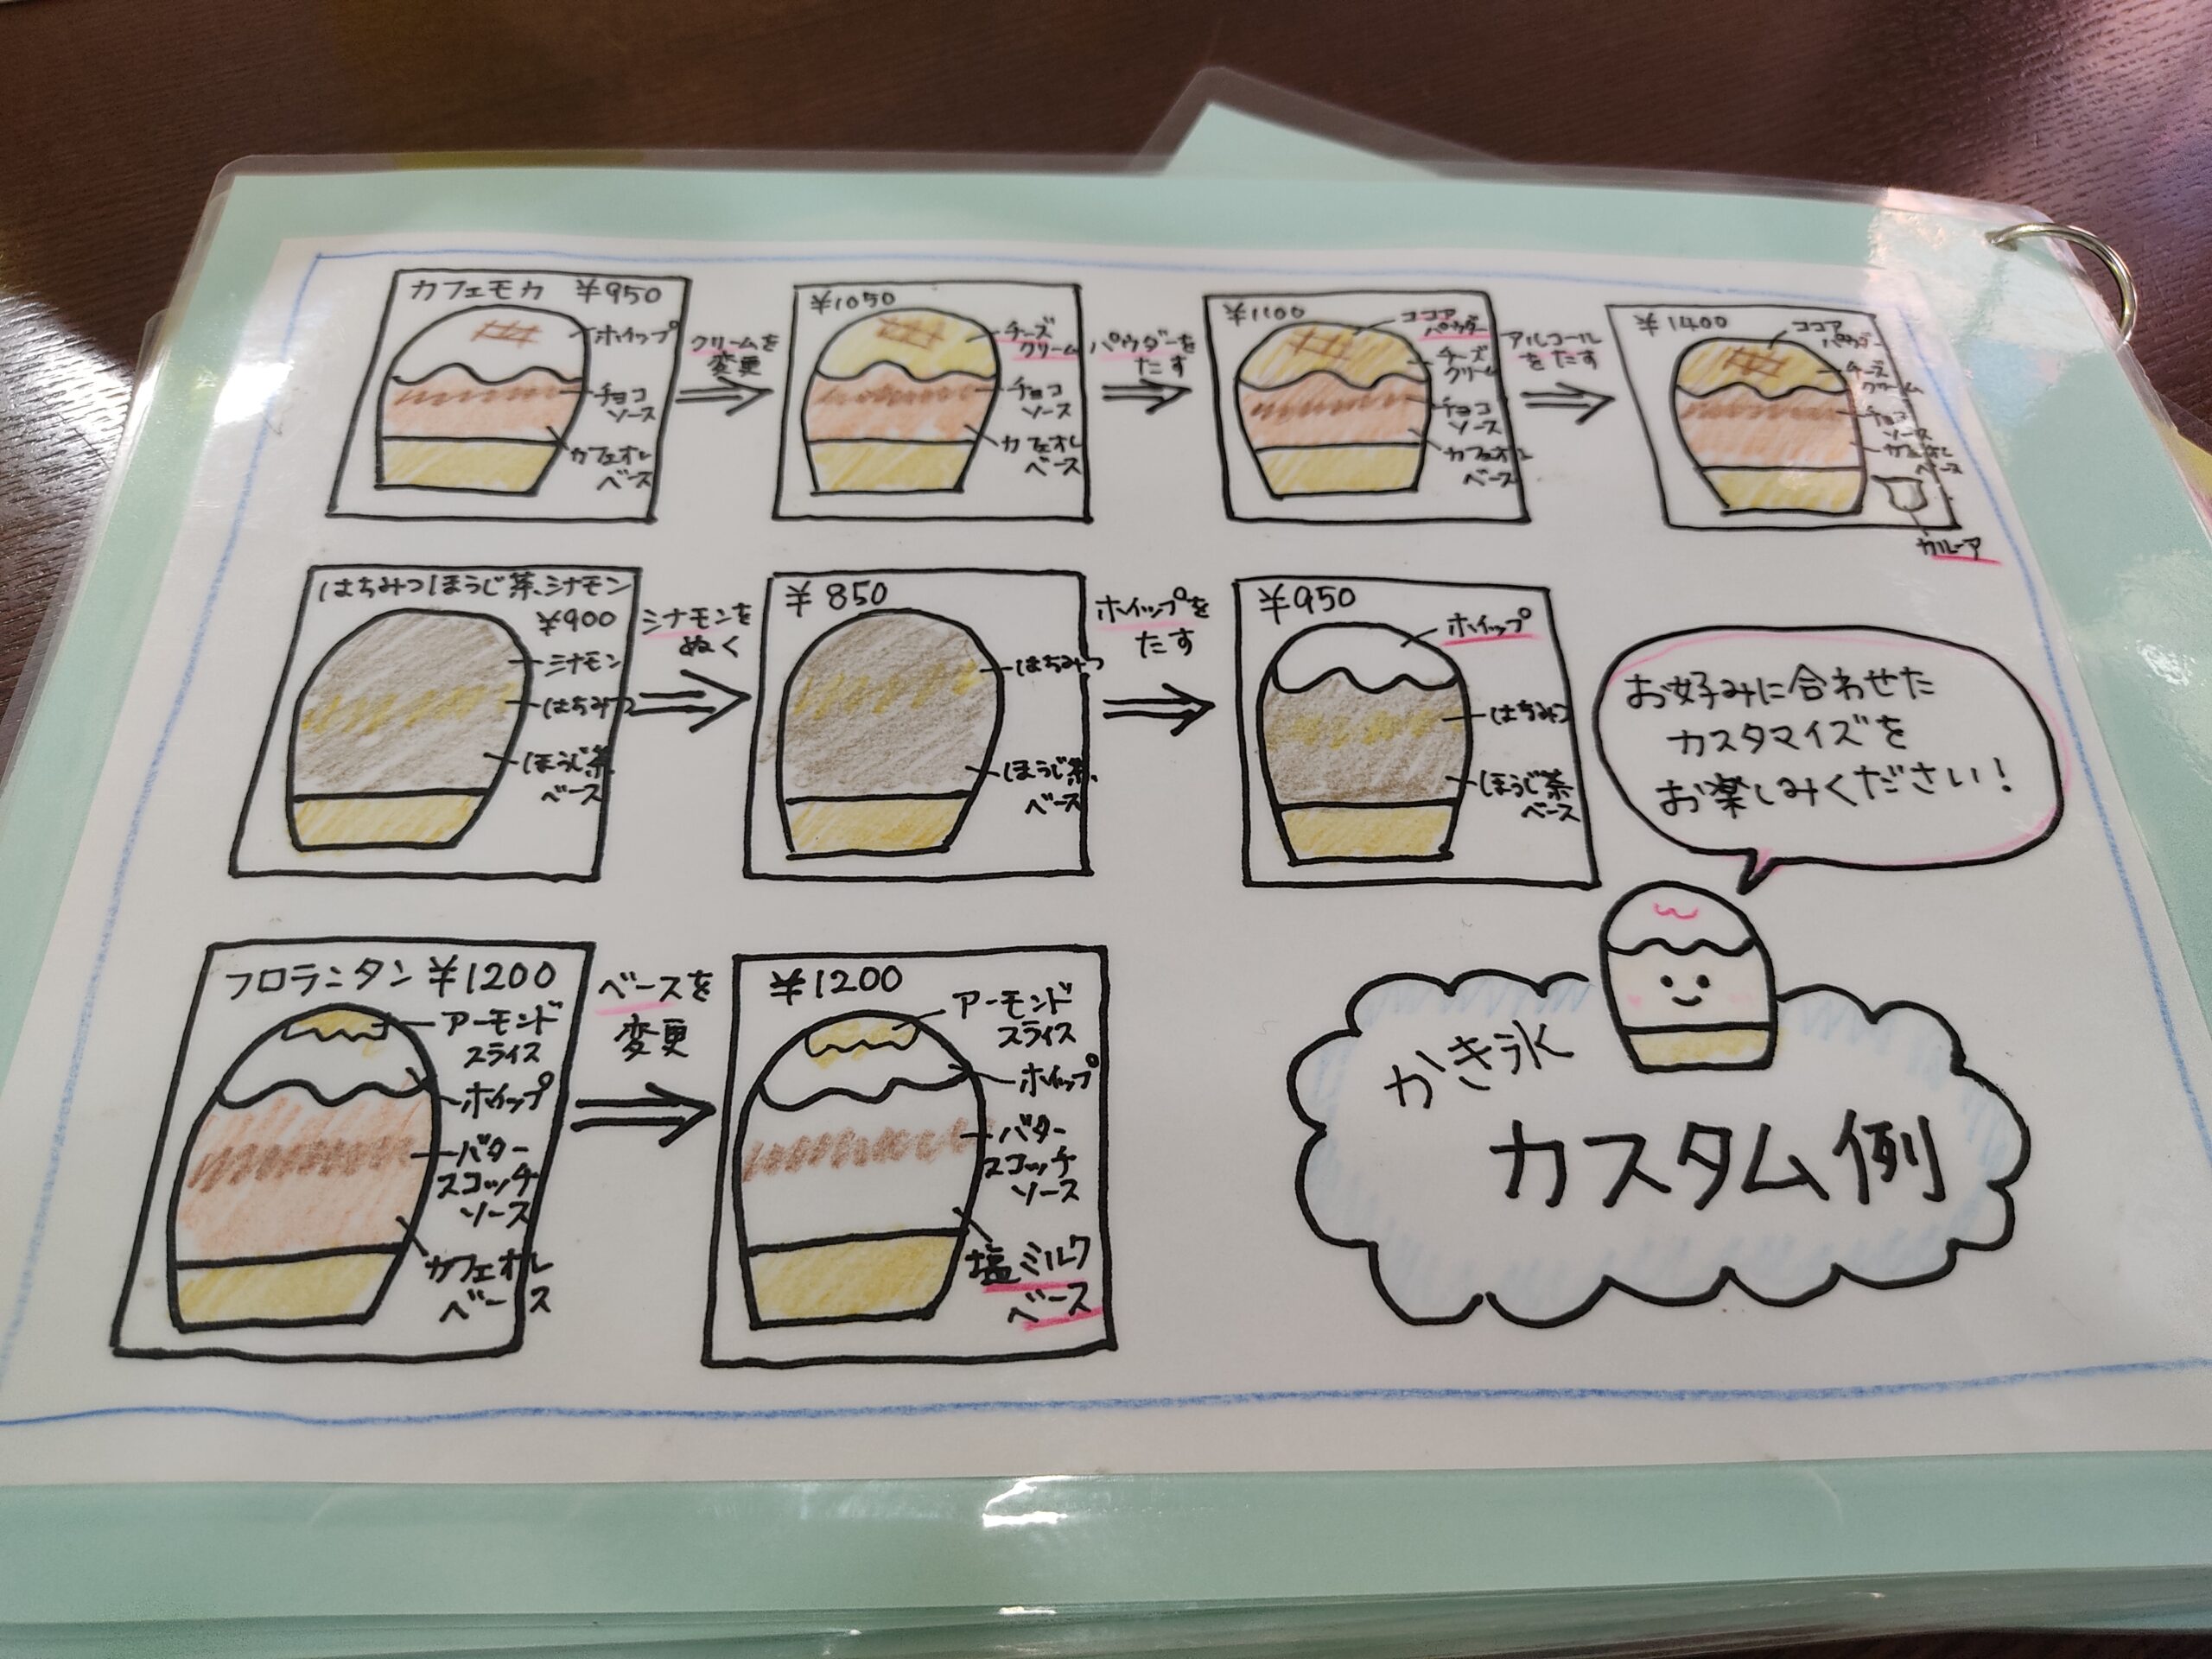 カフェモカ ¥950
ホイップ
チョコ
ソース
カフェオレ
ベース
クリームを
変更
¥1050
チーズ
クリーム
チョコ
ソース
カフェオレ
ベース
パウダーを
たす
¥1100
ココア
パウダー
チーズ
クリーム
チョコ
ソース
カフェオレ
ベース
アルコール
をたす
¥1400
ココア
パウダー
チーズ
クリーム
チョコ
ソース
カフェオレ
ベース
カルーア
はちみつほうじ茶、シナモン
¥900
シナモン
はちみつ
ほうじ茶
ベース
シナモンを
ぬく
¥850
はちみつ
ほうじ茶
ベース
ホイップを
たす
¥950
ホイップ
はちみつ
ほうじ茶
ベース
お好みに合わせた
カスタマイズを
お楽しみください!
フロランタン ¥1200
アーモンド
スライス
ホイップ
バター
スコッチ
ソース
カフェオレ
ベース
ベースを
変更
¥1200
アーモンド
スライス
ホイップ
バター
スコッチ
ソース
塩ミルク
ベース
かき氷
カスタム例